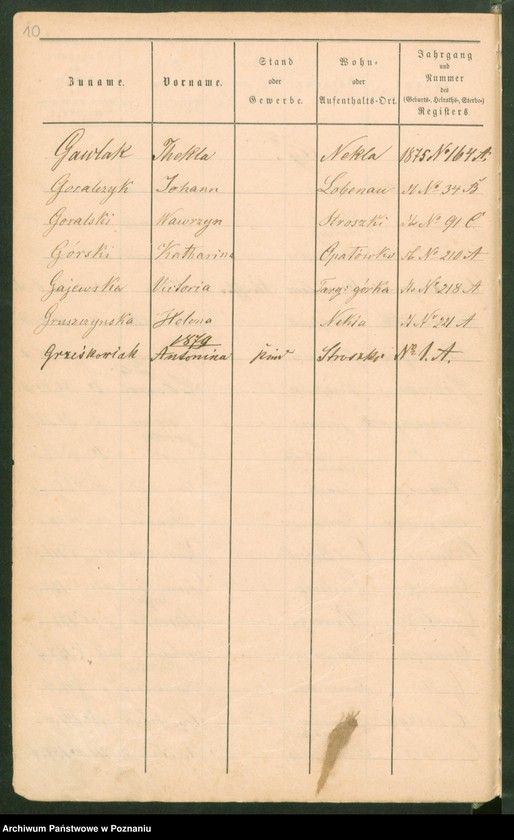 10
Zuname. Vorname. Stand oder Gewerbe. Wohn- oder Aufenthalts-Ort. Jahrgang und Nummer des (Geburts-, Heiraths-, Sterbe-) Registers
Gawlak Thekla Nekla 1875 No 164 A.
Goralczyk Johann Lobenau No 34 B
Goralski Wawrzyn Stroszki No 91 C
Górski Katharina Opatówko No 210 A
Gajewska Victoria Targ. górka No 218 A
Gruszczynska Helena Nekla No 221 A
1879
Grześkowiak Antonina Kind Stroszki No 1. A.
Archiwum Państwowe w Poznaniu